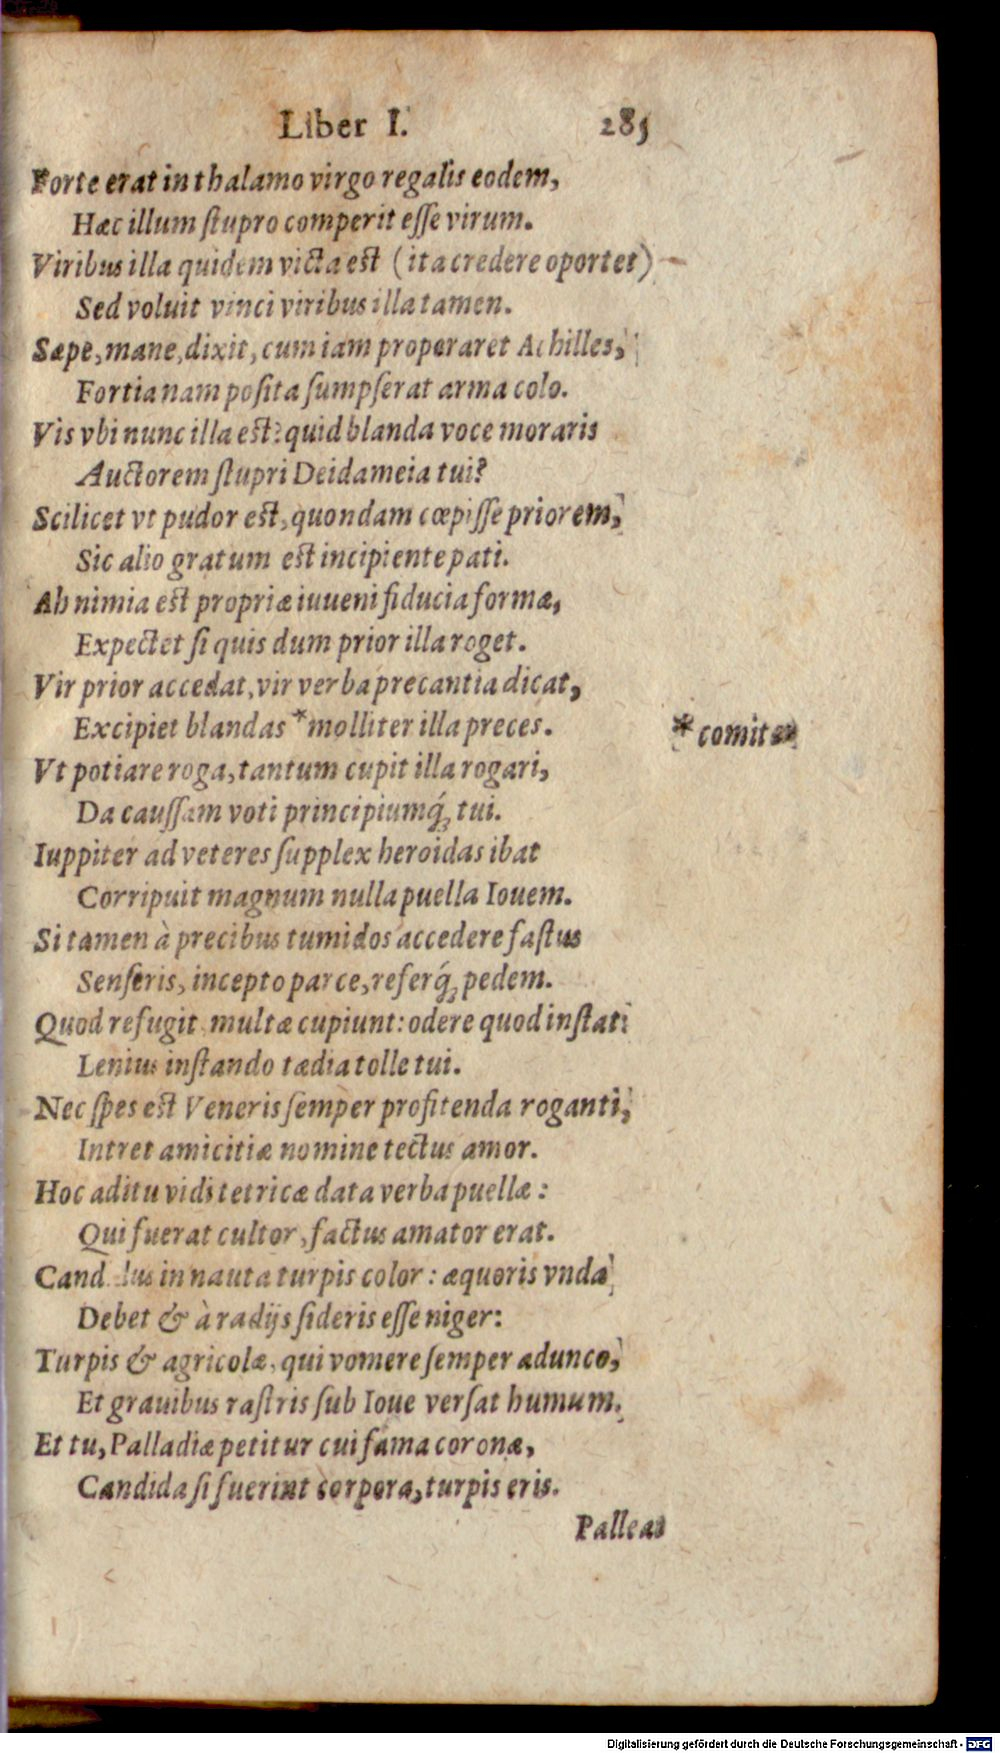 Liber I. 285
Forte erat in thalamo virgo regalis eodem,
Hæc illum ſtupro comperit eſſe virum.
Viribus illa quidem victa eſt (ita credere oportet)
Sed voluit vinci viribus illa tamen.
Sæpe, mane, dixit, cum iam properaret Achilles,
Fortia nam poſita ſumpſerat arma colo.
Vis vbi nunc illa eſt? quid blanda voce moraris
Auctorem ſtupri Deidameia tui?
Scilicet vt pudor eſt, quondam cœpiſſe priorem,
Sic alio gratum eſt incipiente pati.
Ah nimia eſt propriæ iuueni fiducia formæ,
Expectet ſi quis dum prior illa roget.
Vir prior accedat, vir verba precantia dicat,
Excipiet blandas *molliter illa preces.
* comiter
Vt potiare roga, tantum cupit illa rogari,
Da cauſſam voti principiumq́; tui.
Iuppiter ad veteres ſupplex heroidas ibat
Corripuit magnum nulla puella Iouem.
Si tamen à precibus tumidos accedere faſtus
Senſeris, incepto parce, referq́; pedem.
Quod refugit multæ cupiunt: odere quod inſtat:
Lenius inſtando tædia tolle tui.
Nec ſpes eſt Veneris ſemper profitenda roganti,
Intret amicitiæ nomine tectus amor.
Hoc aditu vidi tetricæ data verba puellæ:
Qui fuerat cultor, factus amator erat.
Candidus in nauta turpis color: æquoris vnda
Debet & à radijs ſideris eſſe niger:
Turpis & agricolæ, qui vomere ſemper adunco,
Et grauibus raſtris ſub Ioue verſat humum.
Et tu, Palladiæ petitur cui fama coronæ,
Candida ſi fuerint corpora, turpis eris.
Palleat
Digitalisierung gefördert durch die Deutsche Forschungsgemeinschaft - DFG